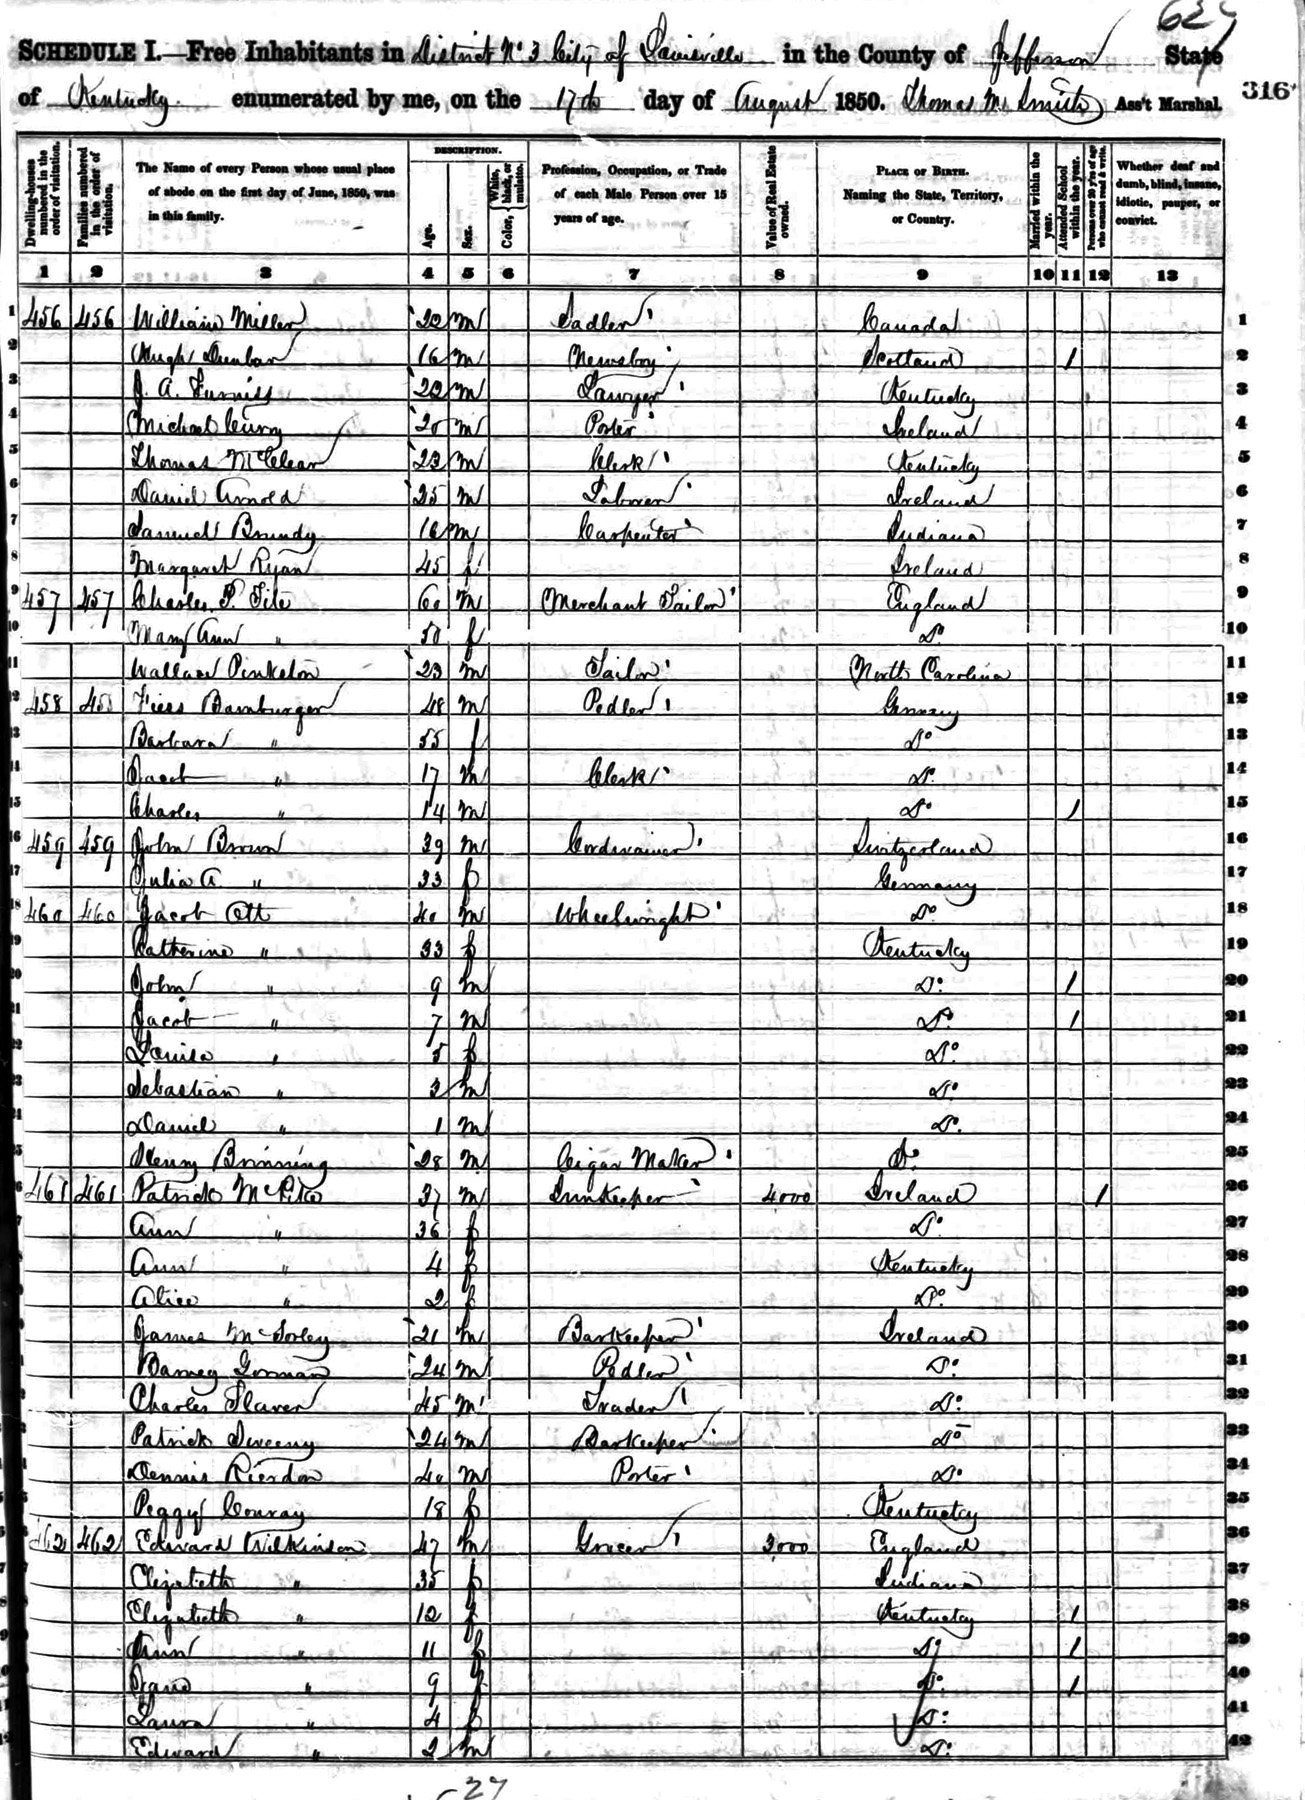 627
SCHEDULE I.—Free Inhabitants in District No 3 City of Louisville in the County of Jefferson State
of Kentucky enumerated by me, on the 17th day of August 1850. Thomas M. Smith Ass't Marshal.
316
Dwelling-houses numbered in the order of visitation.
Families numbered in the order of visitation.
The Name of every Person whose usual place of abode on the first day of June, 1850, was in this family.
DESCRIPTION.
Age.
Sex.
Color, White, black, or mulatto.
Profession, Occupation, or Trade of each Male Person over 15 years of age.
Value of Real Estate owned.
PLACE OF BIRTH. Naming the State, Territory, or Country.
Married within the year.
Attended School within the year.
Persons over 20 y'rs of age who cannot read & write.
Whether deaf and dumb, blind, insane, idiotic, pauper, or convict.
1 2 3 4 5 6 7 8 9 10 11 12 13
1 456 456 William Miller 22 m Sadler Canada 1
2 Hugh Dunbar 16 m Newsboy Scotland 1 2
3 J. A. Furniss 22 m Lawyer Kentucky 3
4 Michael Curry 20 m Porter Ireland 4
5 Thomas McClean 23 m Clerk Kentucky 5
6 Daniel Arnold 25 m Laborer Ireland 6
7 Samuel Brundy 16 m Carpenter Indiana 7
8 Margaret Ryan 45 f Ireland 8
9 457 457 Charles P. Tite 60 m Merchant Tailor England 9
10 Mary Ann " 50 f Do 10
11 Wallace Pinkston 23 m Tailor North Carolina 11
12 458 458 Bamburger 48 m Pedler Germany 12
13 Barbara " 55 f Do 13
14 Jacob " 17 m Clerk Do 14
15 Charles " 14 m Do 1 15
16 459 459 John Brown 39 m Cordwainer Switzerland 16
17 Julia A " 33 f Germany 17
18 460 460 Jacob Ott 40 m Wheelwright Do 18
19 Catherine " 33 f Kentucky 19
20 John " 9 m Do 1 20
21 Jacob " 7 m Do 1 21
22 Louisa " 5 f Do 22
23 Sebastian " 3 m Do 23
24 Daniel " 1 m Do 24
25 Henry Brinning 28 m Cigar Maker Do 25
26 461 461 Patrick McPike 37 m Innkeeper 4000 Ireland 1 26
27 Ann " 36 f Do 27
28 Ann " 4 f Kentucky 28
29 Alice " 2 f Do 29
30 James McSorley 21 m Barkeeper Ireland 30
31 Barney Gorman 24 m Pedler Do 31
32 Charles Slaven 45 m Trader Do 32
33 Patrick Sweeny 24 m Barkeeper Do 33
34 Dennis Rierdon 40 m Porter Do 34
35 Peggy Conray 18 f Kentucky 35
36 462 462 Edward Wilkinson 47 m Grocer 3000 England 36
37 Elizabeth " 35 f Indiana 37
38 Elizabeth " 12 f Kentucky 1 38
39 Ann " 11 f Do 1 39
40 Jane " 9 f Do 1 40
41 Laura " 4 f Do 41
42 Edward " 2 m Do 42